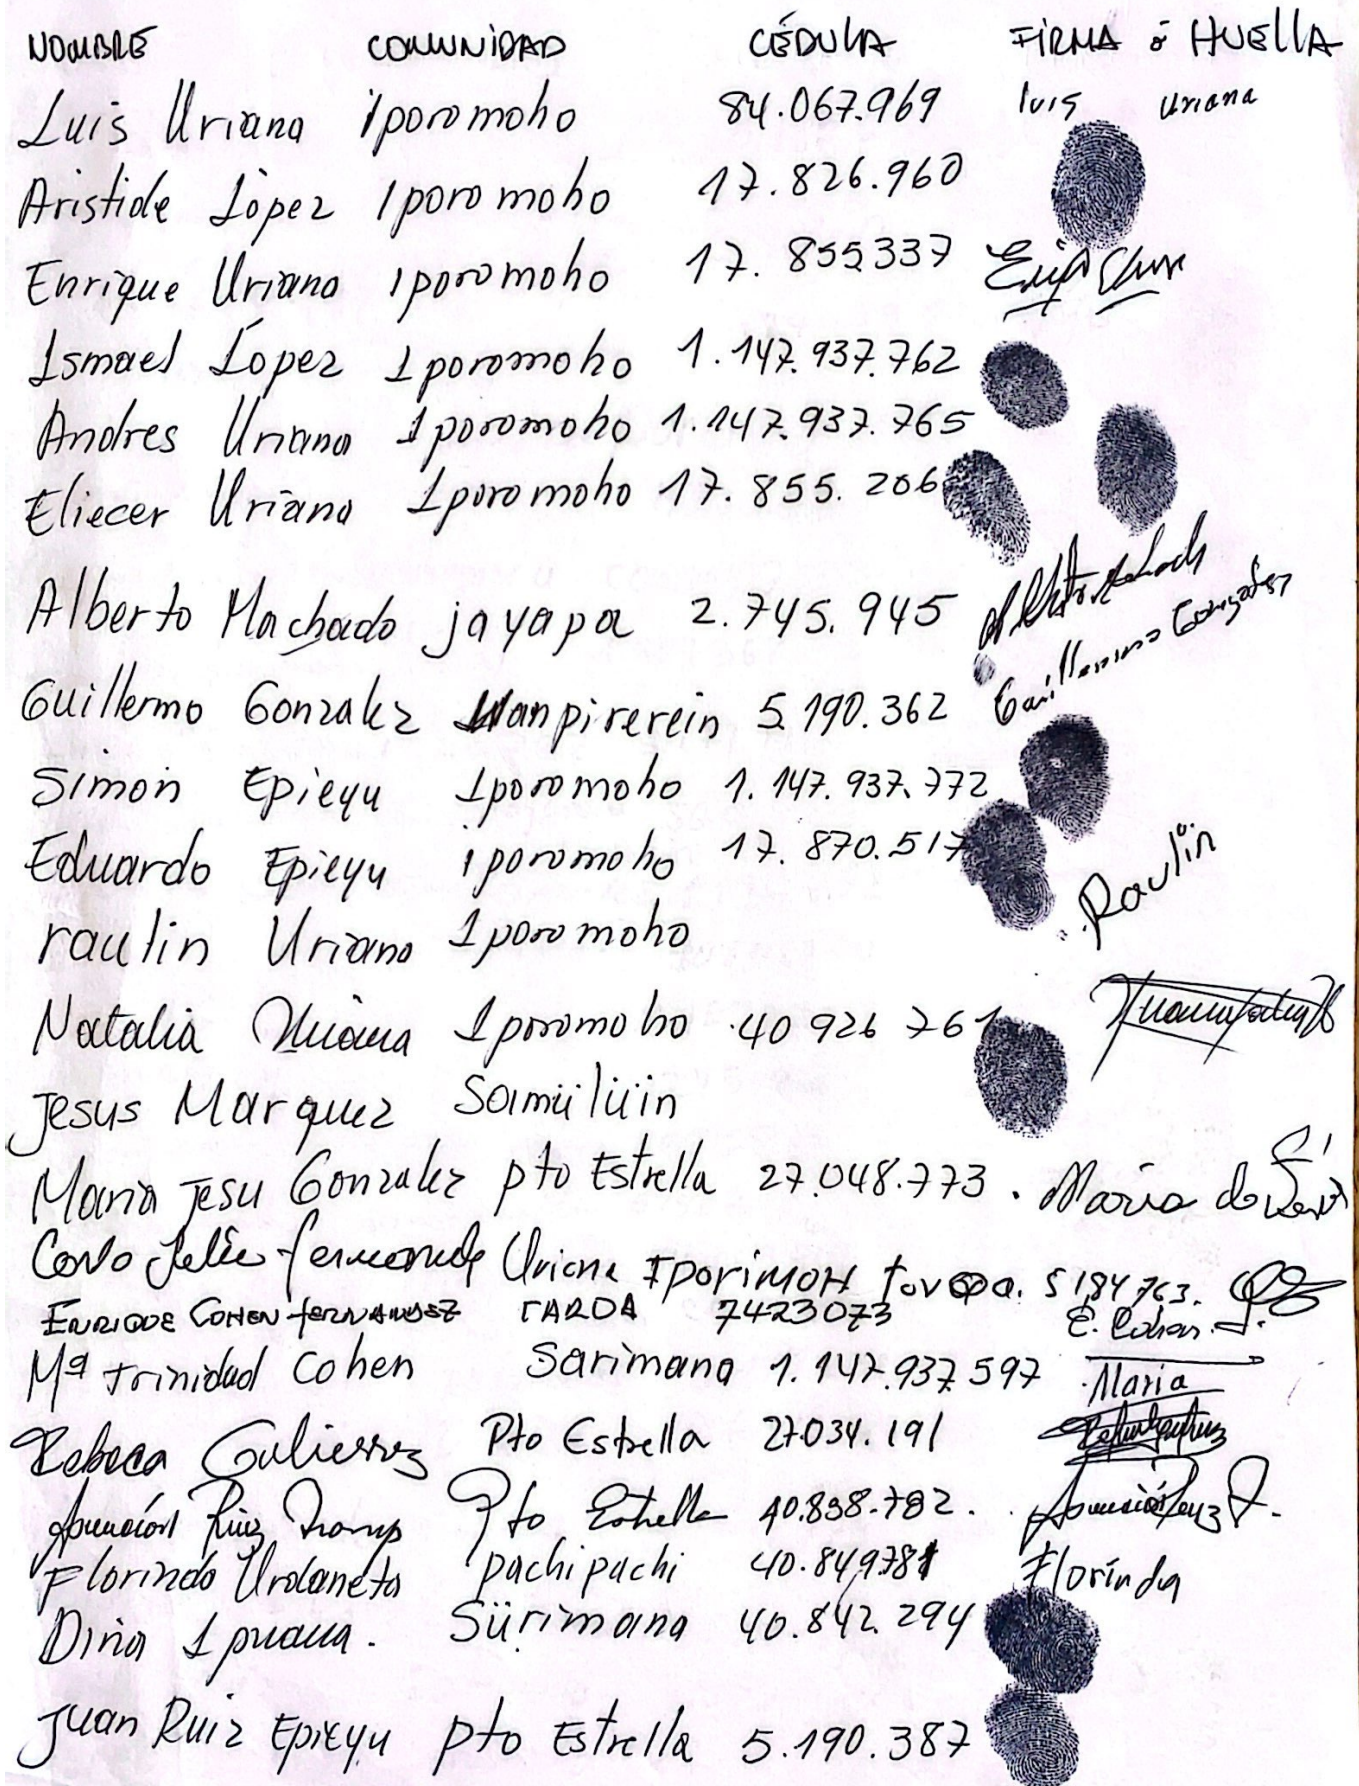 NOMBRE COMUNIDAD CÉDULA FIRMA ó HUELLA
Luis Uriana iporomoho 84.067.969 luis uriana
Aristide López Iporomoho 17.826.960
Enrique Uriana iporomoho 17.855337
Ismael López Iporomoho 1.147.937.762
Andres Uriana Iporomoho 1.147.937.765
Eliecer Uriana Iporomoho 17.855.206
Alberto Machado jayapa 2.745.945
Guillermo Gonzalez Wanpirerein 5.190.362 Guillermo Gonzalez
Simon Epieyu Iporomoho 1.147.937.772
Eduardo Epieyu iporomoho 17.870.517
raulin Uriano Iporomoho Raulin
Natalia Uriana Iporomoho 40 926 761
Jesus Marquez Samüilüin
Maria Jesu Gonzalez pto Estrella 27.048.773. Maria de
Uriana 5184763.
ENRIQUE COHEN FERNANDEZ TAROA 7423073 E. Cohen.
Mª trinidad Cohen Sarimana 1.147.937.597 Maria
Rebeca Gutierrez Pto Estrella 27.034.191
Asunción Ruiz Pto Estrella 40.838.782.
Florindo Urdaneta pachipachi 40.849781 Florinda
Dina Ipuana. Sürimana 40.842.294
Juan Ruiz Epieyu pto Estrella 5.190.387